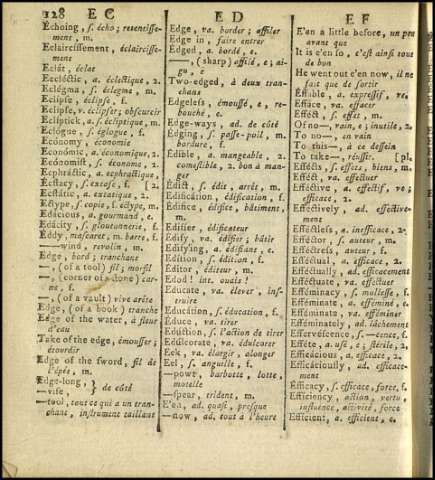 128 E C
Echoing, s. écho; retentisse-
ment, m.
Eclaircissement, éclaircisse-
ment
Eclat, éclat
Ecléctic, a. éclectique, 2.
Eclégma, s. éclegme, m.
Eclipse, éclipse, f.
Eclipse, v. éclipser; obscurcir
Ecliptick, a. écliptique, m.
Eclogue, s. églogue, f.
Ecónomy, économie
Económic, a. économique, 2.
Ecónomist, s. économe, 2.
Ecphráctic, a. ecphractique,
Ecstacy, s. extase, f. [2.
Ecstátic, a. extatique, 2.
Ectype, s. copie, f. ectype, m.
Edácious, a. gourmand, e.
Edácity, s. gloutonnerie, f.
Eddy, mascaret, m. barre, f.
——wind, revolin, m.
Edge, bord; tranchant
—, (of a tool) fil; morfil
—, (corner of a stone) car-
ne, f.
—, (of a vault) vive arête
Edge, (of a book) tranche
Edge of the water, à fleur
d'eau
Take of the edge, émousser;
étourdir
Edge of the sword, fil de
l'épée, m.
Edge-long, } de côté
—vise,
—tool, tout ce qui a un tran-
chant, instrument taillant
E D
Edge, va. border; affiler
Edge in, faire entrer
Edged, a. bordé, e.
——, (sharp) affilé, e; ai-
gu, e
Two-edged, à deux tran-
chans
Edgeless, émoussé, e, re-
bouché, e.
Edge-ways, ad. de côté
Edging, s. passe-poil, m.
bordure, f.
Edible, a. mangeable, 2.
comestible, 2. bon à man-
ger
Edict, s. édit, arrêt, m.
Edification, édification, f.
Edifice, édifice, bâtiment,
m.
Edifier, édificateur
Edify, va. édifier; bâtir
Edifying, a. édifiant, e.
Edition, s. édition, f.
Editor, éditeur, m.
Edod! int. ouais!
Educate, va. élever, ins-
truire
Education, s. éducation, f.
Educe, va. tirer
Eduction, s. l'action de tirer
Edulcorate, va. édulcorer
Eek, va. élargir, alonger
Eel, s. anguille, f.
—powt, barbotte, lotte,
motelle
—spear, trident, m.
E'en, ad. quasi, presque
—now, ad. tout à l'heure
E F
E'en a little before, un peu
avant que
It is e'en so, c'est ainsi tout
de bon
He went out e'en now, il ne
fait que de sortir
Effable, a. expressif, ve.
Efface, va. effacer
Efféct, s. effet, m.
Of no—, vain, e; inutile, 2.
To no—, en vain
To this—, à ce dessein
To take—, réussir. [pl.
Efféctts, s. effets, biens, m.
Efféct, va. effectuer
Effective, a. effectif, ve;
efficace, 2.
Effectively, ad. effective-
ment
Efféctless, a. inefficace, 2.
Efféctor, s. auteur, m.
Effectress, s. auteur, f.
Efféctual, a. efficace, 2.
Efféctually, ad. efficacement
Efféctuate, va. effectuer
Efféminacy, s. mollesse, f.
Efféminate, a. efféminé, e.
Efféminate, va. efféminer
Efféminately, ad. lâchement
Effervescence, s. —cence, f.
Efféte, a. usé, e; stérile, 2.
Efficácious, a. efficace, 2.
Efficáciously, ad. efficace-
ment
Efficacy, s. efficace, force, f.
Efficiency, action, vertu,
influence, activité, force
Efficient, a. efficient, e.